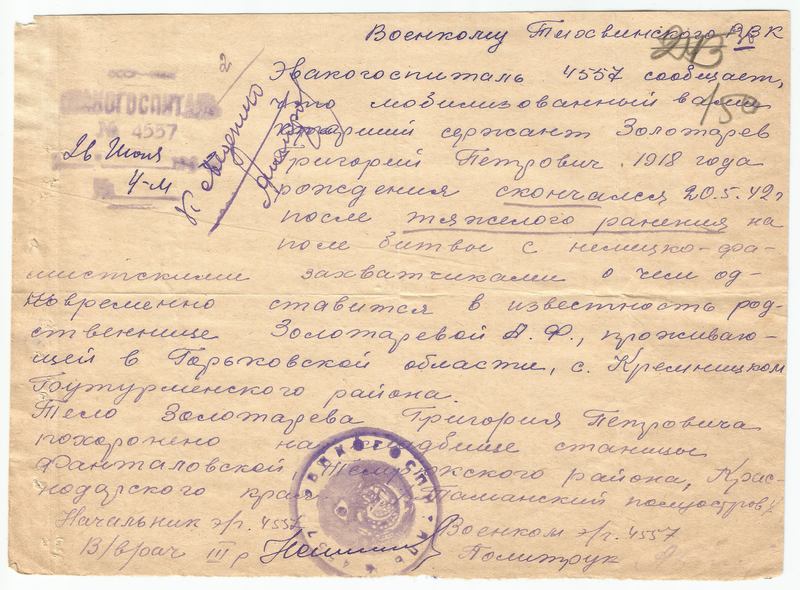 Военкому Тихвинского РВК
Эвакогоспиталь 4557 сообщает,
ЭВАКОГОСПИТАЛЬ
№ 4557
что мобилизованный вами
26 Июня
старший сержант Золотарев
4-м
Григорий Петрович 1918 года
К сведению
рождения скончался 20.5.42г
после тяжелого ранения на
поле битвы с немецко-фа-
шистскими захватчиками о чем од-
новременно ставится в известность род-
ственнице Золотаревой А. Ф., проживаю-
щей в Горьковской области, с. Кремницком
района.
Тело Золотарева Григория Петровича
похоронено на кладбище станицы
Фанталовской Темрюкского района, Крас-
нодарского края Таманский полуостров
Начальник э/г. 4557 Военком э/г. 4557
В/врач III р Политрук